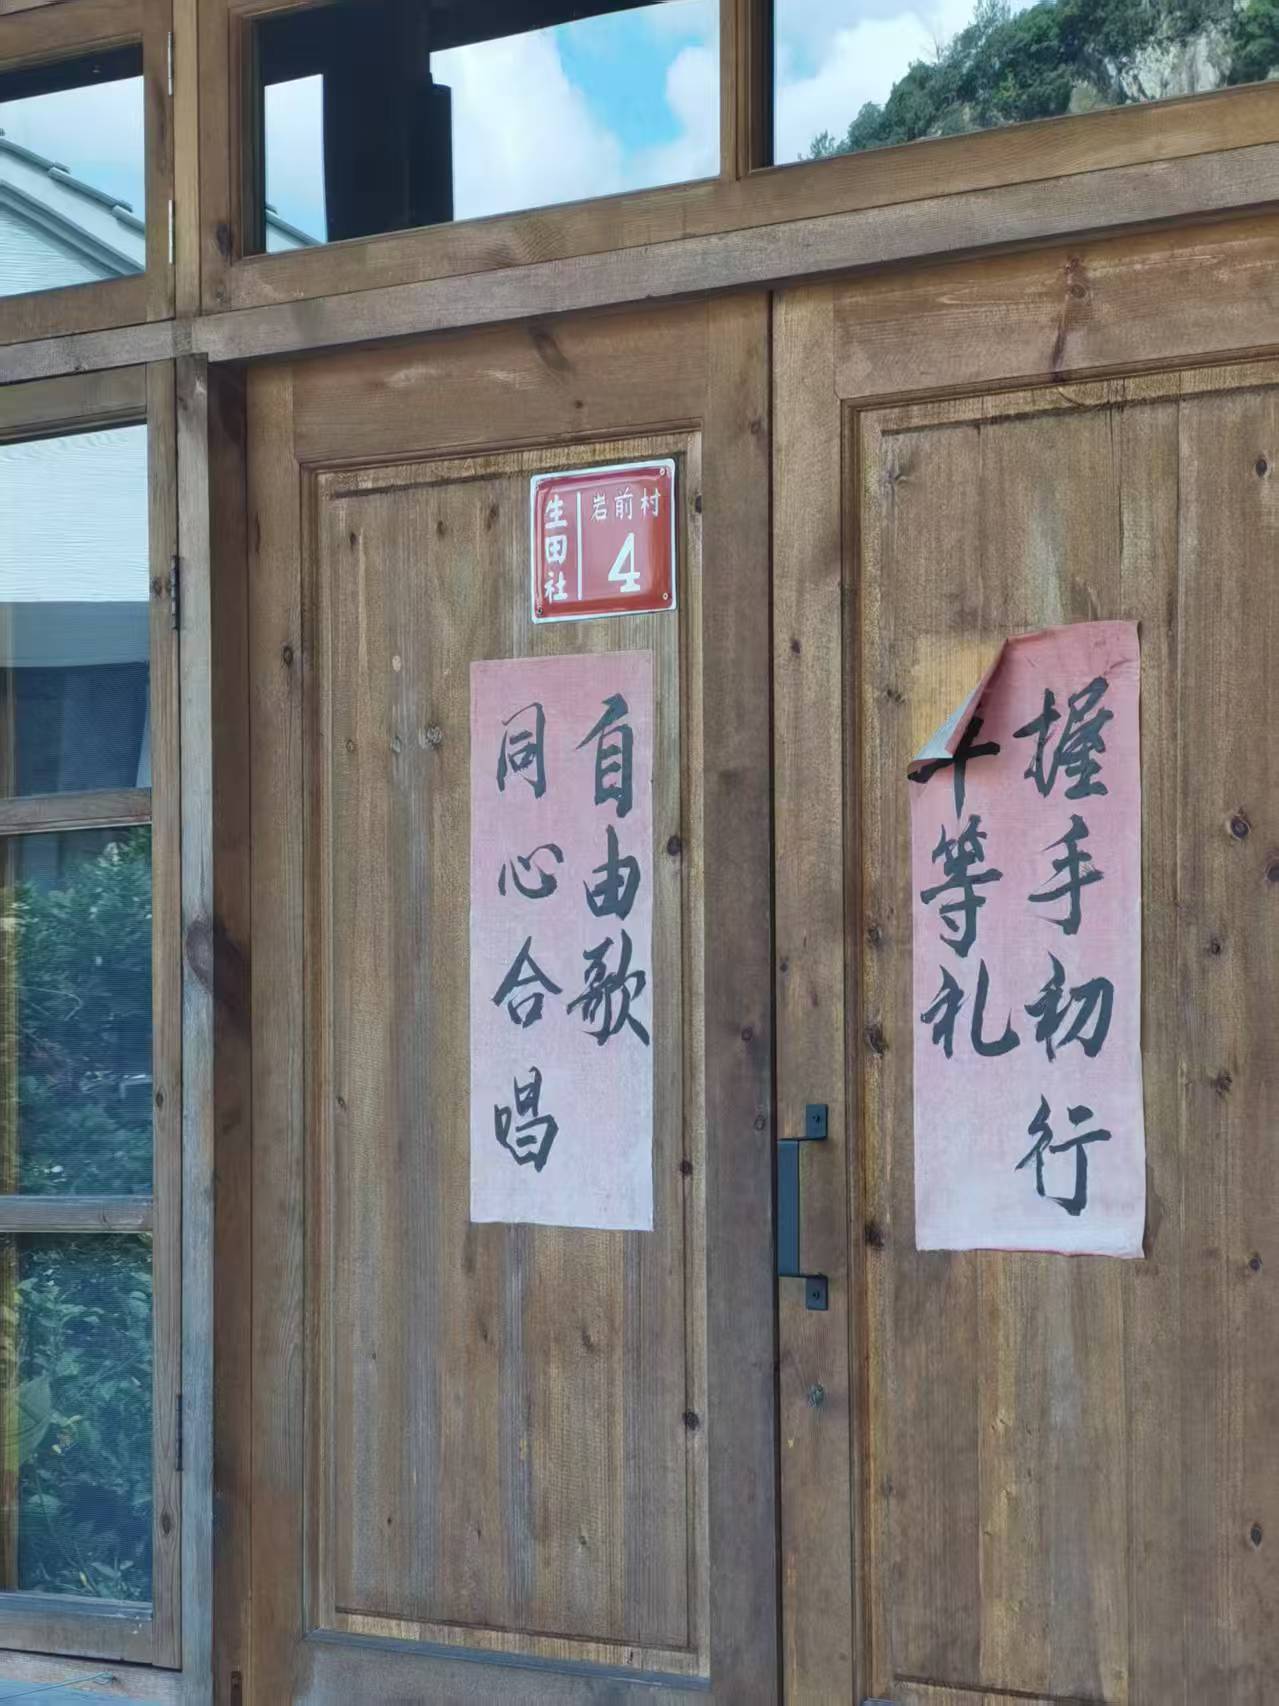 生田社
岩前村
4
握手初行
平等礼
同心合唱
自由歌